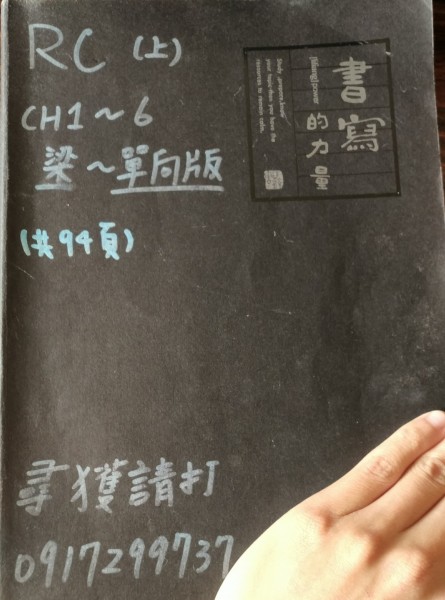 RC (上)
CH1～6
梁～單向版
(共94頁)
書寫
的力量
尋獲請打
0917299737